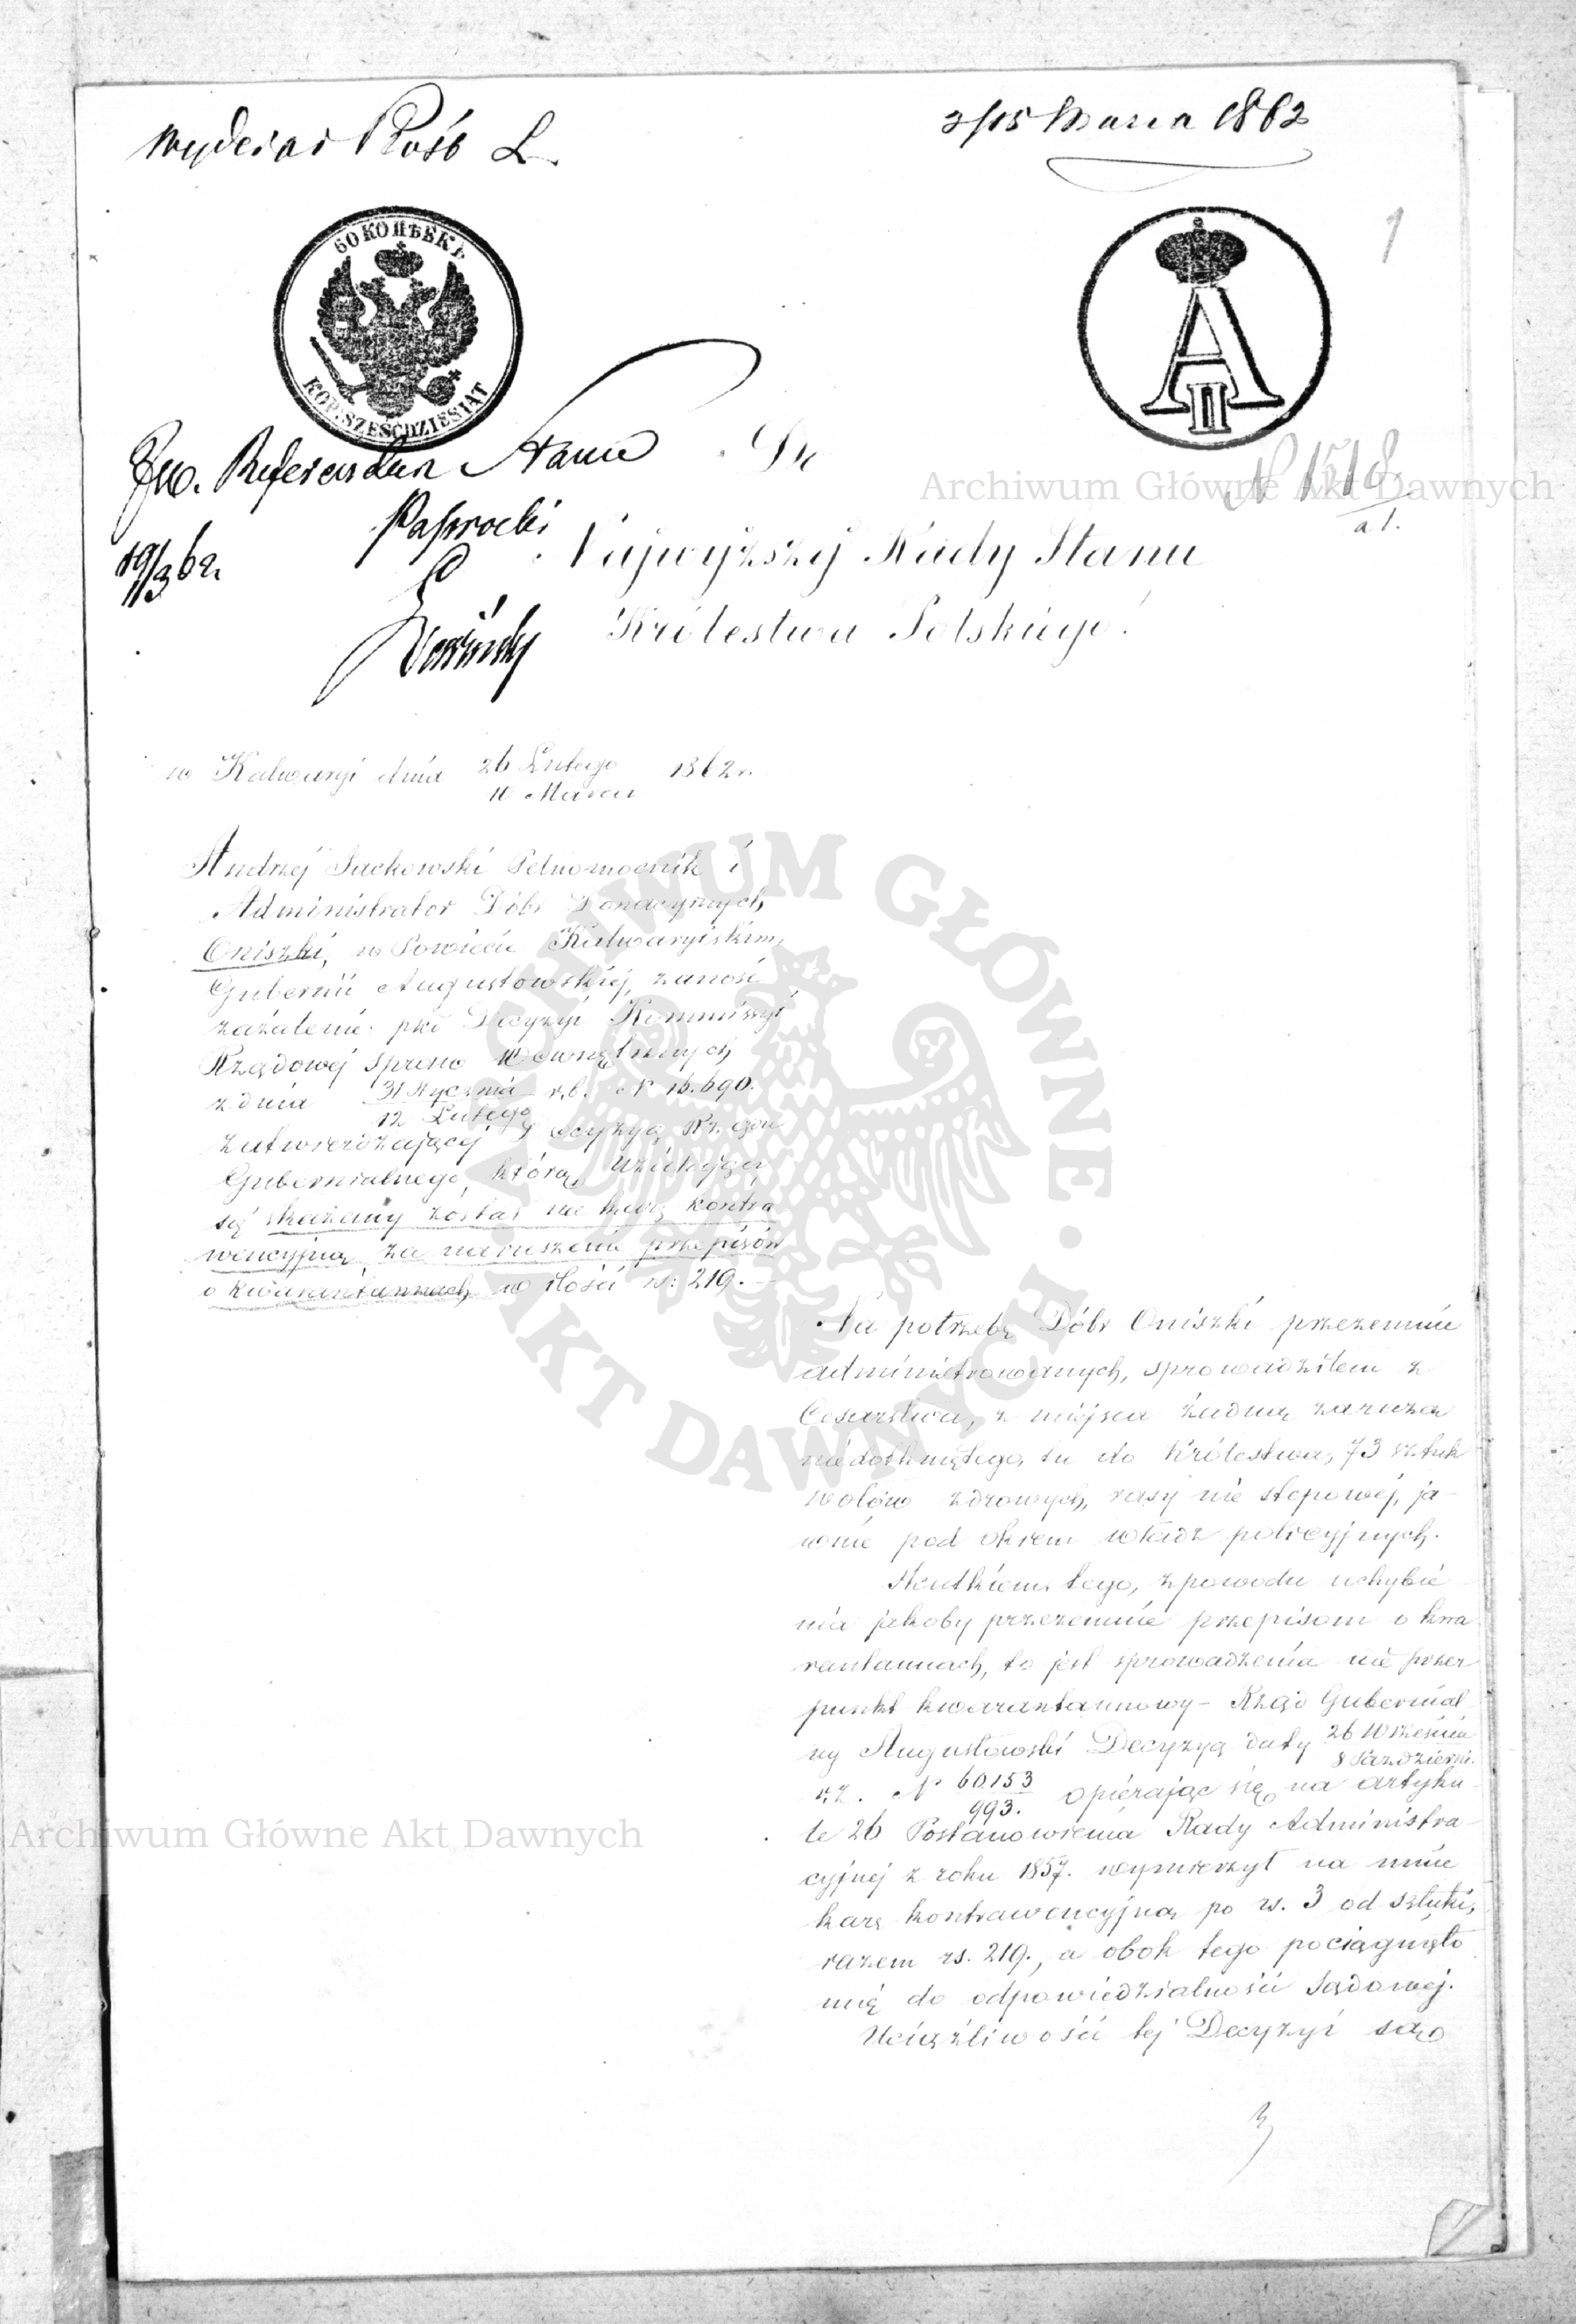 Wydział Próśb L.
3/15 Marca 1862
1
60 КОПѢЕКЪ
KOP. SZEŚĆDZIESIĄT
A II
JW. Referendarz Stanu
Paprocki
19/3 62r.
N 1518
a 1.
Do
Najwyższej Rady Stanu
Królestwa Polskiego.
w Kalwaryi dnia 26 Lutego / 10 Marca 1862 r.
Andrzej Sackowski Pełnomocnik i
Administrator Dóbr Donacyjnych
Oniszki, w Powiecie Kalwaryjskim,
Gubernii Augustowskiej, zanosi
zażalenie pko Decyzyi Kommissyi
Rządowej Spraw Wewnętrznych
z dnia 31 Stycznia / 12 Lutego r.b. N 16.690.
zatwierdzającej Decyzyą Rządu
Gubernialnego, którą
się skazany został na karę kontra
wencyjną za naruszenie przepisów
o kwarantannach, w ilości rs: 219.—
Na potrzebę Dóbr Oniszki przezemnie
administrowanych, sprowadziłem z
Cesarstwa, z miejsca żadną zarazą
niedotkniętego, tu do Królestwa, 73 sztuk
wołów zdrowych, rasy nie stepowej, ja-
wnie pod okiem władz policyjnych.
Skutkiem tego, z powodu uchybie
nia jakoby przezemnie przepisom o kwa
rantannach, to jest sprowadzenia nie przez
punkt kwarantannowy – Rząd Gubernial
ny Augustowski Decyzyą daty 26 Września / 8 Październi.
r.z. N 60.153 / 993. opierając się na artyku-
le 26 Postanowienia Rady Administra-
cyjnej z roku 1857. wymierzył na mnie
karę kontrawencyjną po rs. 3 od sztuki,
razem rs. 219., a obok tego pociągnęło
mię do odpowiedzialności Sądowej.
Uciążliwości tej Decyzyi są
Archiwum Główne Akt Dawnych
ARCHIWUM GŁÓWNE • AKT DAWNYCH •
Archiwum Główne Akt Dawnych